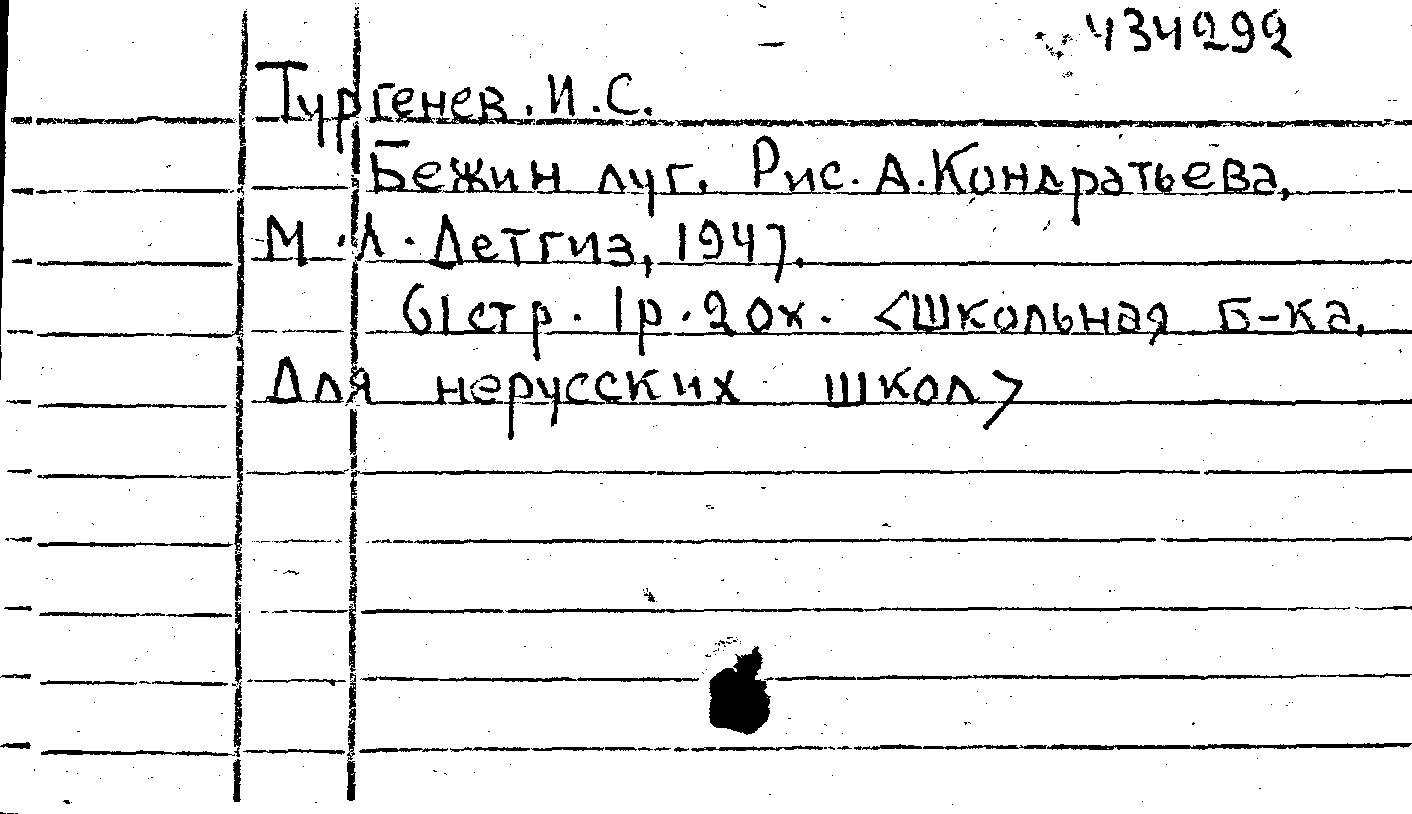 434292
Тургенев. И.С.
Бежин луг. Рис. А.Кондратьева,
М.Л. Детгиз, 1947.
61стр. 1р. 20х. <Школьная Б-ка.
Для нерусских школ>